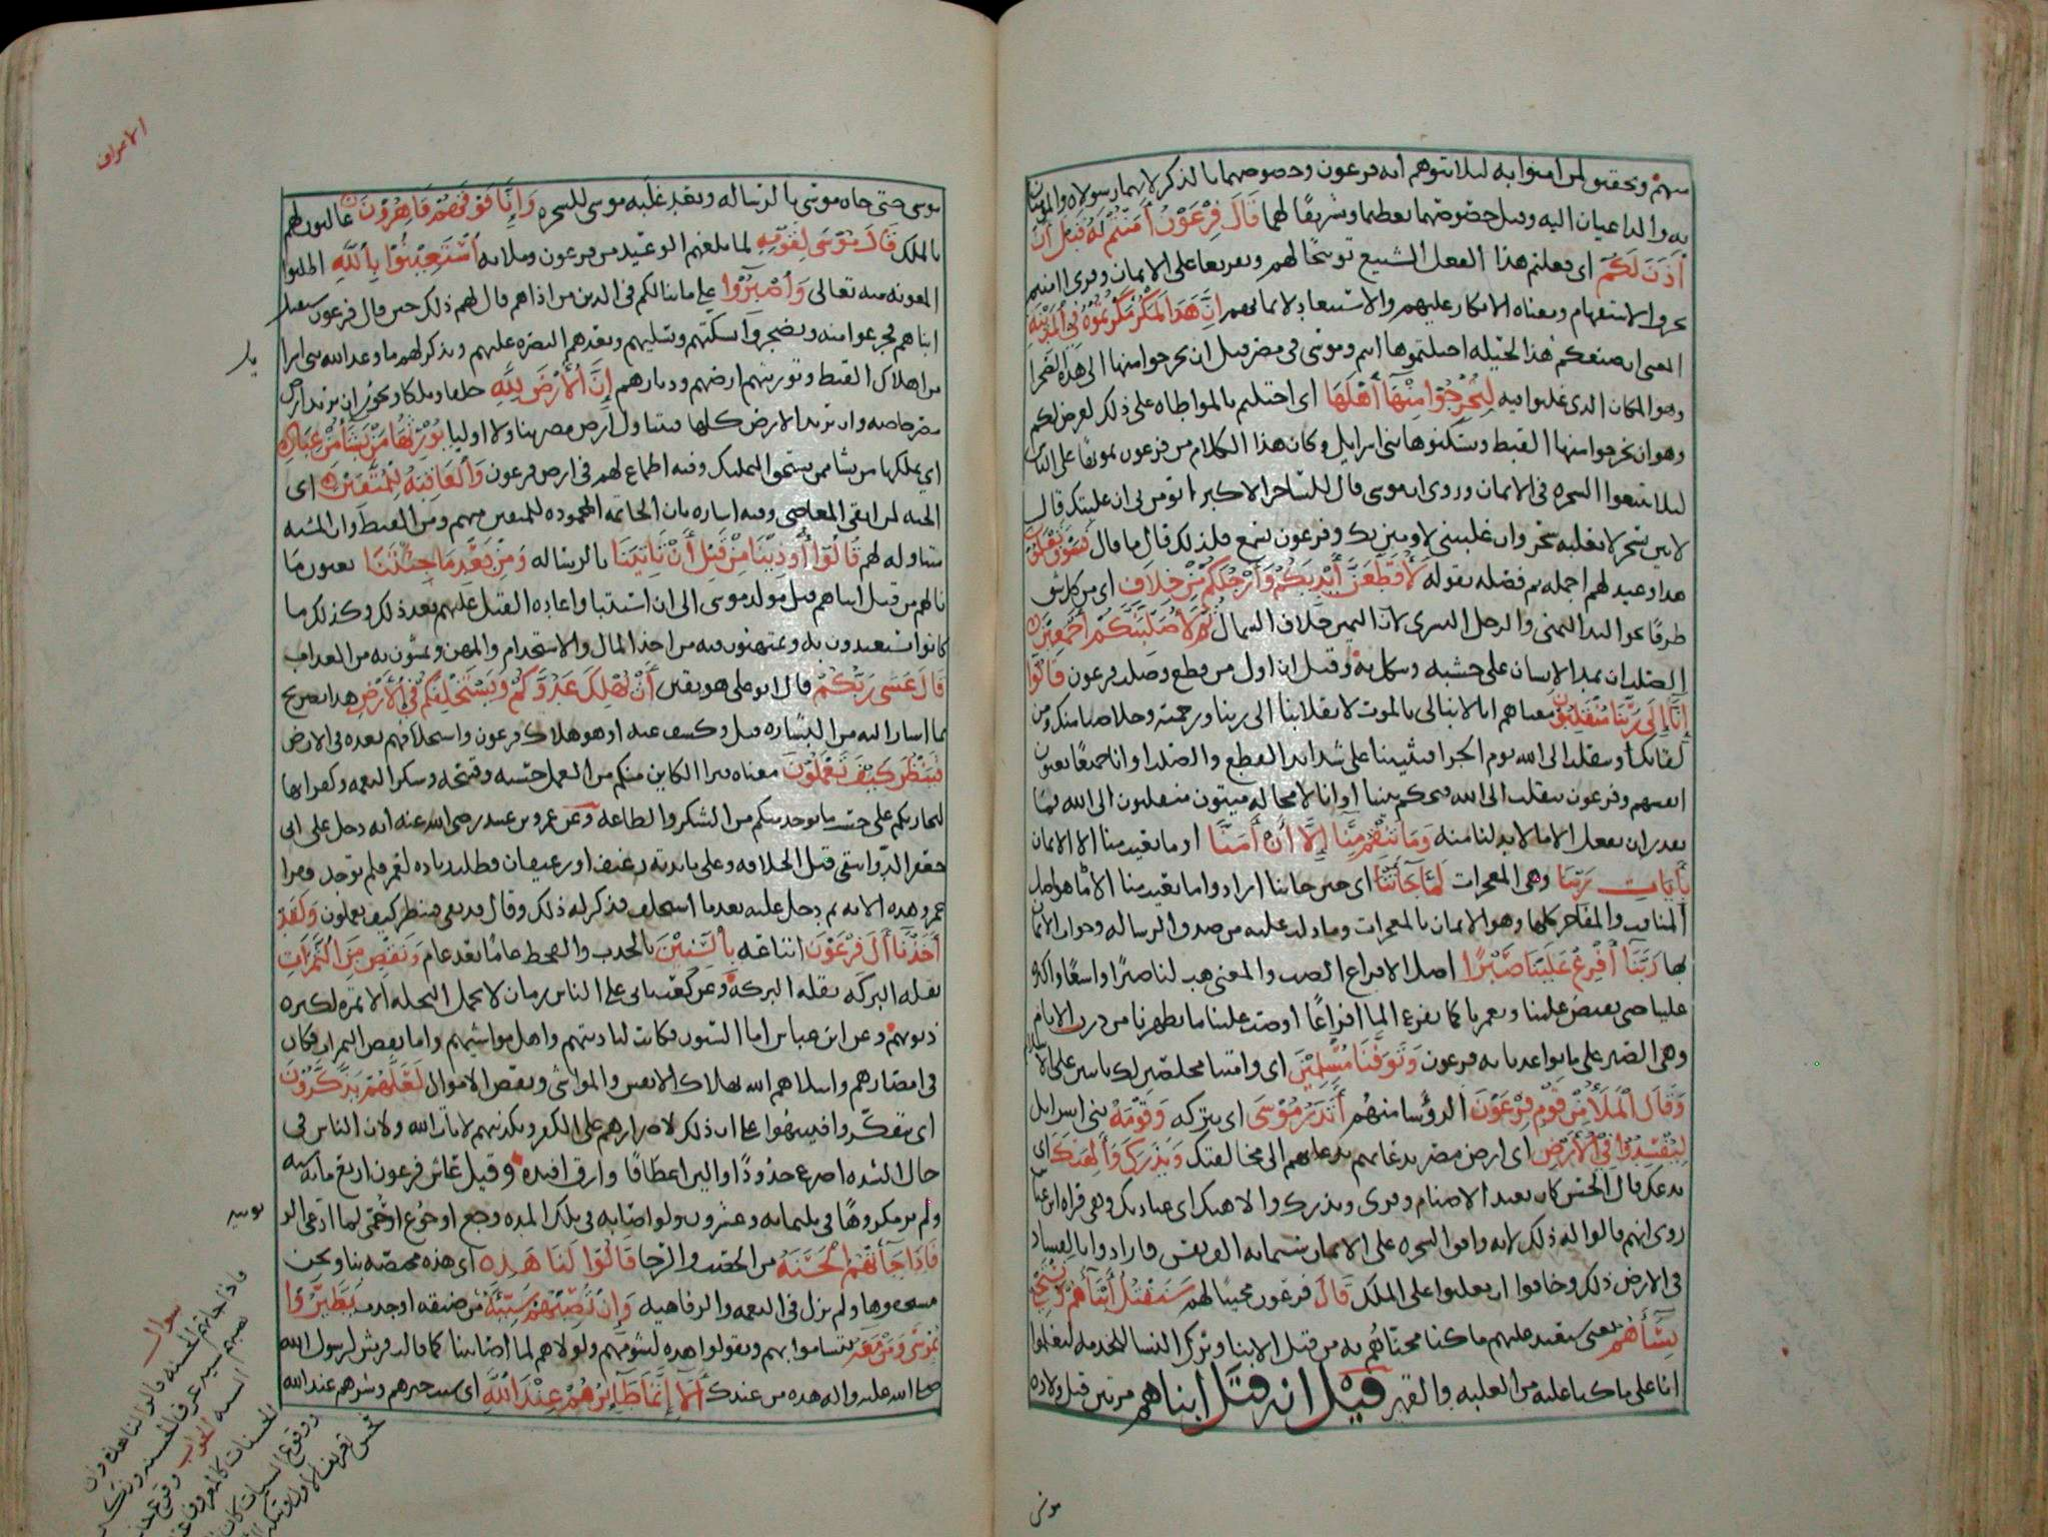 منهم وتحقيق لمن امنوا به ليلا يتوهم انه فرعون وخصوصهما بالذكر لانهما رسولاه والمومنان
به والداعيان اليه وقيل خصوصهما تعظيما وتشريفا لهما قَالَ فِرْعَوْنُ أَمَنْتُمْ لَهُ قَبْلَ أَنْ
أَذَنَ لَكُمْ اي فعلتم هذا الفعل الشنيع توبيخا لهم وتقريعا على الايمان وقرى اامنتم
بحرف الاستفهام ومعناه الانكار عليهم والاستبعاد لايمانهم إِنَّ هَذَا لَمَكْرٌ مَكَرْتُمُوهُ فِي الْمَدِيْنَةِ
المعنى ان صنعكم هذا لحيله احتلتموها انتم وموسى في مصر قبل ان تخرجوا منها الى هذه الصحرا
وهو المكان الذي غلبوا فيه لِتُخْرِجُوْا مِنْهَا أَهْلَهَا اي احتلتم بالمواطاه على ذلك لغرض لكم
وهو ان تخرجوا منها القبط وتسكنوها بني اسرايل وكان هذا الكلام من فرعون تمويها على الناس
ليلا يتبعوا السحره في الايمان وروى ان موسى قال للساحر الاكبر اتومن بي ان غلبتك قال
لاتين بسحر لا يغلبه سحر وان غلبتني لاومنن بك وفرعون يسمع فلذلك قال ما قال فَسَوْفَ تَعْلَمُوْنَ
هذا وعيد لهم اجمله ثم فصله بقوله لَأُقَطِّعَنَّ أَيْدِيَكُمْ وَأَرْجُلَكُمْ مِّنْ خِلَافٍ اي من كل شق
طرفا نحو اليد اليمنى والرجل اليسرى لان اليمين خلاف الشمال ثُمَّ لَأُصَلِّبَنَّكُمْ أَجْمَعِيْنَ
الصلب ان يمد الانسان على خشبه وينكل به وقيل ان اول من قطع وصلب فرعون قَالُوْا
إِنَّا إِلَى رَبِّنَا مُنْقَلِبُوْنَ معناه انا لا نبالي بالموت لانقلابنا الى ربنا ورحمته وخلاصنا منك ومن
لقايك او ننقلب الى الله يوم الجزا فيثيبنا على شدايد القطع والصلب او انا جميعا يعنون
انفسهم وفرعون ننقلب الى الله فيحكم بيننا او انا لا محاله ميتون منقلبون الى الله فما
تقدر ان تفعل الا ما لا بد لنا منه وَمَا تَنْقِمُ مِنَّا إِلَّا أَنْ أَمَنَّا او ما تعيب منا الا الايمان
بِأَيَاتِ رَبِّنَا وهي المعجزات لَمَّا جَآءَتْنَا اي حين جاتنا ارادوا ما تعيب منا الا ما هو اصل
المناقب والمفاخر كلها وهو الايمان بالمعجزات وما دلت عليه من صدق الرساله
بها رَبَّنَا أَفْرِغْ عَلَيْنَا صَبْرًا اصل الافراغ الصب والمعنى هب لنا صبرا واسعا واكثره
علينا حتى يفيض علينا ويغمرنا كما يفرغ الما افراغا او صب علينا ما يطهرنا من درن الاثام
وهي الصبر على ما تواعدنا به فرعون وَتَوَفَّنَا مُسْلِمِيْنَ اي وامتنا مخلصين لك ثابتين على الاسلام
وَقَالَ الْمَلَأُ مِنْ قَوْمِ فِرْعَوْنَ الرؤسا منهم أَتَذَرُ مُوْسَى اي يتركه وَقَوْمَهُ بني اسرايل
لِيُفْسِدُوْا فِي الْأَرْضِ اي ارض مصر بدعايهم الى مخالفتك وَيَذَرَكَ وَأَلِهَتَكَ اي
يدعك قال الحسن كان يعبد الاصنام وقرى ويذرك والاهتك اي عبادتك وهي قراه ابن عباس
روى انهم قالوا له ذلك لانه وافق السحره على الايمان ستمايه الف نفس فارادوا بالفساد
في الارض ذلك وخافوا ان يغلبوا على الملك قَالَ فرعون مجيبا لهم سَنُقَتِّلُ أَبْنَآءَهُمْ وَنَسْتَحْيِ
نِسَآءَهُمْ يعني سنعيد عليهم ما كنا محناهم به من قتل الابنا وترك النسا للخدمه ليعلموا
انا على ما كنا عليه من الغلبه والقهر قيل انه قتل ابناهم مرتين قبل ولاده
موسى
الاعراف
موسى حتى جاه موسى بالرساله وبعد غلبه موسى للسحره وَإِنَّا فَوْقَهُمْ قَاهِرُوْنَ غالبون لهم
بالملك قَالَ مُوْسَى لِقَوْمِهِ لما بلغهم الوعيد من فرعون وملايه اسْتَعِيْنُوْا بِاللَّهِ اطلبوا
المعونه منه تعالى وَاصْبِرُوْا على ما ينالكم في الدين من اذاهم قال لهم ذلك حين قال فرعون سنقتل
ابناهم فجزعوا منه وتضجروا يسكنهم ويسليهم ويعدهم النصره عليهم ويذكر لهم ما وعد الله بني اسرا
يل
من اهلاك القبط وتوريثهم ارضهم وديارهم إِنَّ الْأَرْضَ لِلَّهِ خلقا وملكا ويجوز ان يريد ارض
مصر خاصه وان يريد الارض كلها فيتناول ارض مصر يُوْرِثُهَا مَنْ يَشَآءُ مِنْ عِبَادِهِ
اي يملكها من يشا ممن يستحق التمليك وفيه اطماع لهم في ارض فرعون وَالْعَاقِبَةُ لِلْمُتَّقِيْنَ اي
الجنه لمن اتقى المعاصي وفيه اشاره بان الخاتمه المحموده للمتقين منهم ومن القبط وان المشيه
متناوله لهم قَالُوْا أُوْذِيْنَا مِنْ قَبْلِ أَنْ تَأْتِيَنَا بالرساله وَمِنْ بَعْدِ مَا جِئْتَنَا يعنون ما
نالهم من قتل ابناهم قبل مولد موسى الى ان استنبا واعاده القتل عليهم بعد ذلك وكذلك ما
كانوا يستعبدون به ويمتهنون فيه من اخذ المال والاستخدام والمهن ويمسون به من العذاب
قَالَ عَسَى رَبُّكُمْ قال ابو علي هو يقين أَنْ يُهْلِكَ عَدُوَّكُمْ وَيَسْتَخْلِفَكُمْ فِي الْأَرْضِ هذا تصريح
بما اشار اليه من البشاره قبل وكشف عنه او هو هلاك فرعون واستخلافهم بعده في الارض
فَيَنْظُرَ كَيْفَ تَعْمَلُوْنَ معناه فيرا الكاين منكم من العمل حسنه وقبيحه وشكر النعمه وكفرانها
ليجازيكم على حسب ما يوجد منكم من الشكر والطاعه وعن عمرو بن عبيد رضي الله عنه انه دخل على ابي
جعفر الدوانيقي قبل الخلافه وعلى مايدته رغيف او رغيفان وطلب زياده لعمرو فلم توجد فقرا
عمرو هذه الايه ثم دخل عليه بعد ما استخلف فذكر له ذلك وقال قد بقي فينظر كيف تعملون وَلَقَدْ
أَخَذْنَآ أَلَ فِرْعَوْنَ اتباعه بِالسِّنِيْنَ بالجدب والقحط عاما بعد عام وَنَقْصٍ مِنَ الثَّمَرَاتِ
بقله البركه وعن كعب ياتي على الناس زمان لا تحمل النخله الا تمره لكثره
ذنوبهم وعن ابن عباس اما السنون فكانت لباديتهم واهل مواشيهم واما نقص الثمرات فكان
في امصارهم وابتلاهم الله بهلاك الانفس والمواشي ونقص الاموال لَعَلَّهُمْ يَذَّكَّرُوْنَ
اي يتفكروا فينتبهوا على ان ذلك لاصرارهم على الكفر وتكذيبهم لايات الله ولان الناس في
حال الشده اضرع خدودا والين اعطافا وارق افيده وقيل عاش فرعون اربع مايه سنه
ولم ير مكروها في ثلثمايه وعشرون ولو اصابه في تلك المده وجع او جوع او حمى لما ادعى الر
بوبيه
فَإِذَا جَآءَتْهُمُ الْحَسَنَةُ من الخصب والرخا قَالُوْا لَنَا هَذِهِ اي هذه مختصه بنا ونحن
مستحقوها ولم نزل في النعمه والرفاهيه وَإِنْ تُصِبْهُمْ سَيِّئَةٌ من ضيقه او جدب يَطَّيَّرُوْا
بِمُوْسَى وَمَنْ مَعَهُ يتشاموا بهم ويقولوا هذه بشومهم ولولاهم لما اصابتنا كما قالت قريش لرسول الله
صلى الله عليه واله هذه من عندك أَلَآ إِنَّمَا طَآئِرُهُمْ عِنْدَ اللَّهِ اي سبب خيرهم وشرهم عند الله
سوال
فاذا جاتهم الحسنه قالوا لنا هذه وان
تصبهم سييه عرف الحسنه ونكر
السييه الجواب وقوع
الحسنات كالمعروف
ووقوع السيات كان